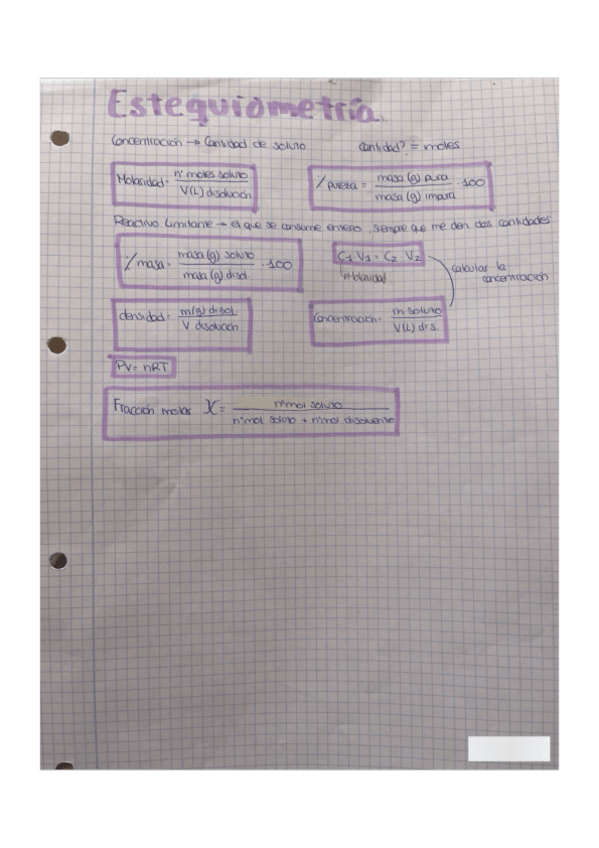 Estequiometría.
Concentración → Cantidad de soluto    Cantidad? = moles
Molaridad = nº moles soluto / V(L) disolución    % pureza = masa (g) pura / masa (g) impura · 100
Reactivo Limitante → el que se consume entero. Siempre que me den dos cantidades
% masa = masa (g) soluto / masa (g) disol. · 100    C₁·V₁ = C₂·V₂
Molaridad    calcular la concentración
densidad = m(g) disol. / V disolución    Concentración = m soluto / V(L) dis.
PV = nRT
Fracción molar X = nº mol soluto / nº mol soluto + nº mol disolvente